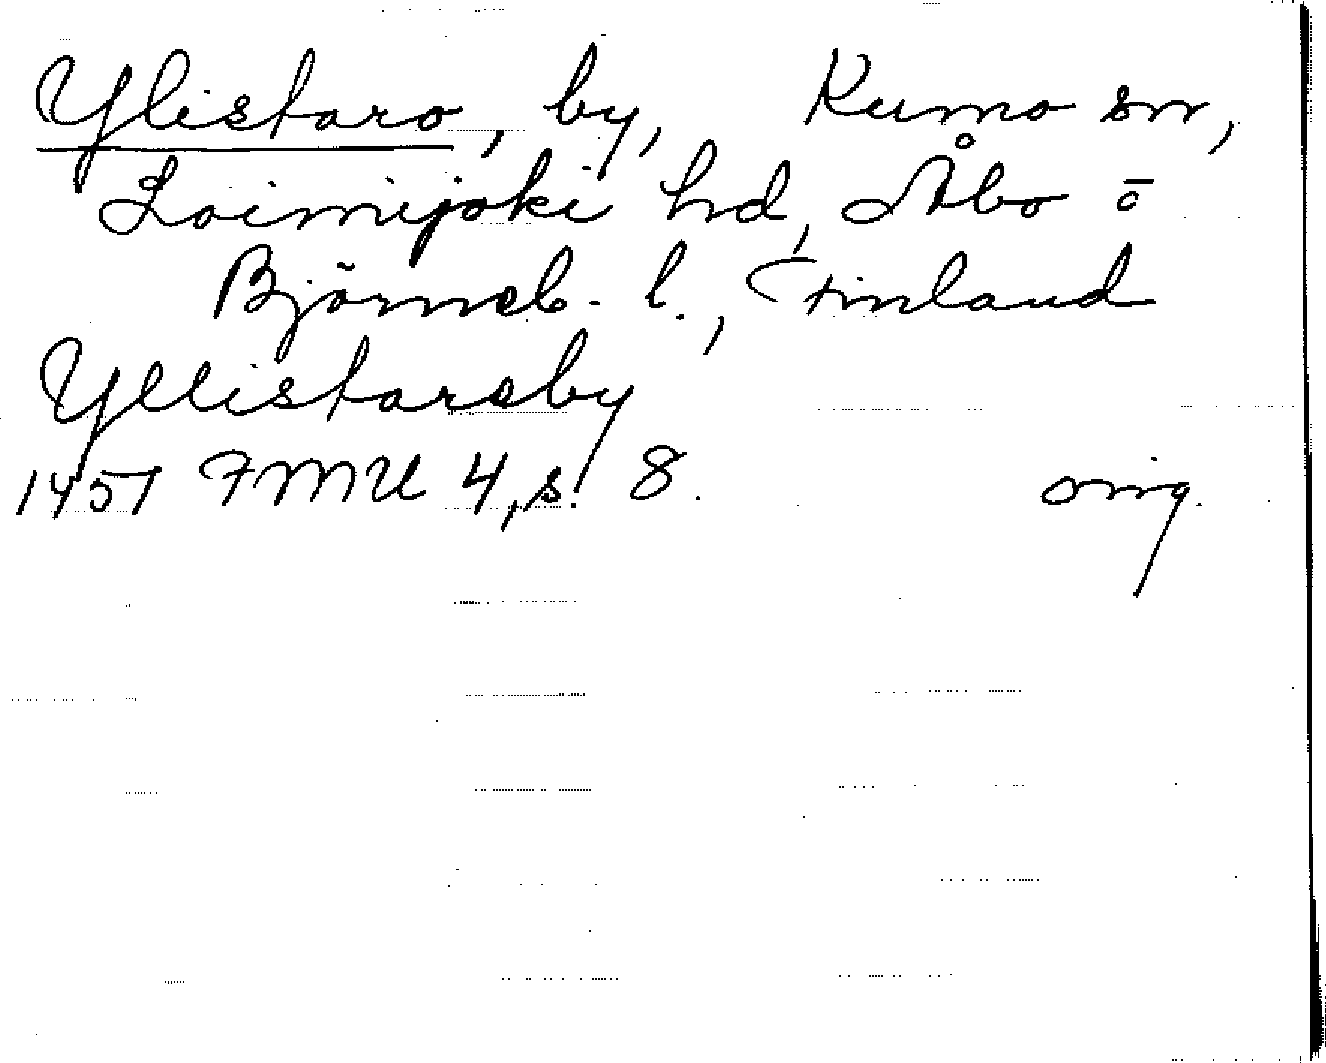 Ylistaro, by, Kumo sn,
Loimijoki hd, Åbo o
Björneb. l., Finland
Yllistaroby
1457 FMU 4, s. 8. orig.